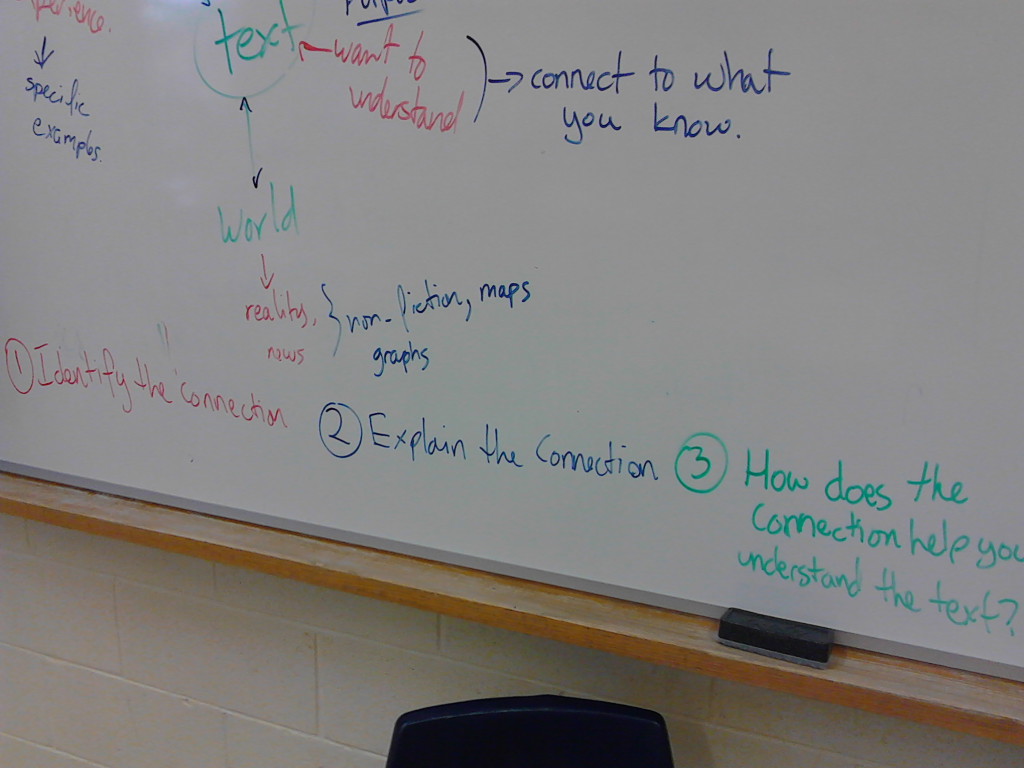 text
want to
understand
connect to what
you know.
specific
examples.
World
reality,
news
non-fiction, maps
graphs
1 Identify the connection
2 Explain the Connection
3 How does the
connection help you
understand the text?